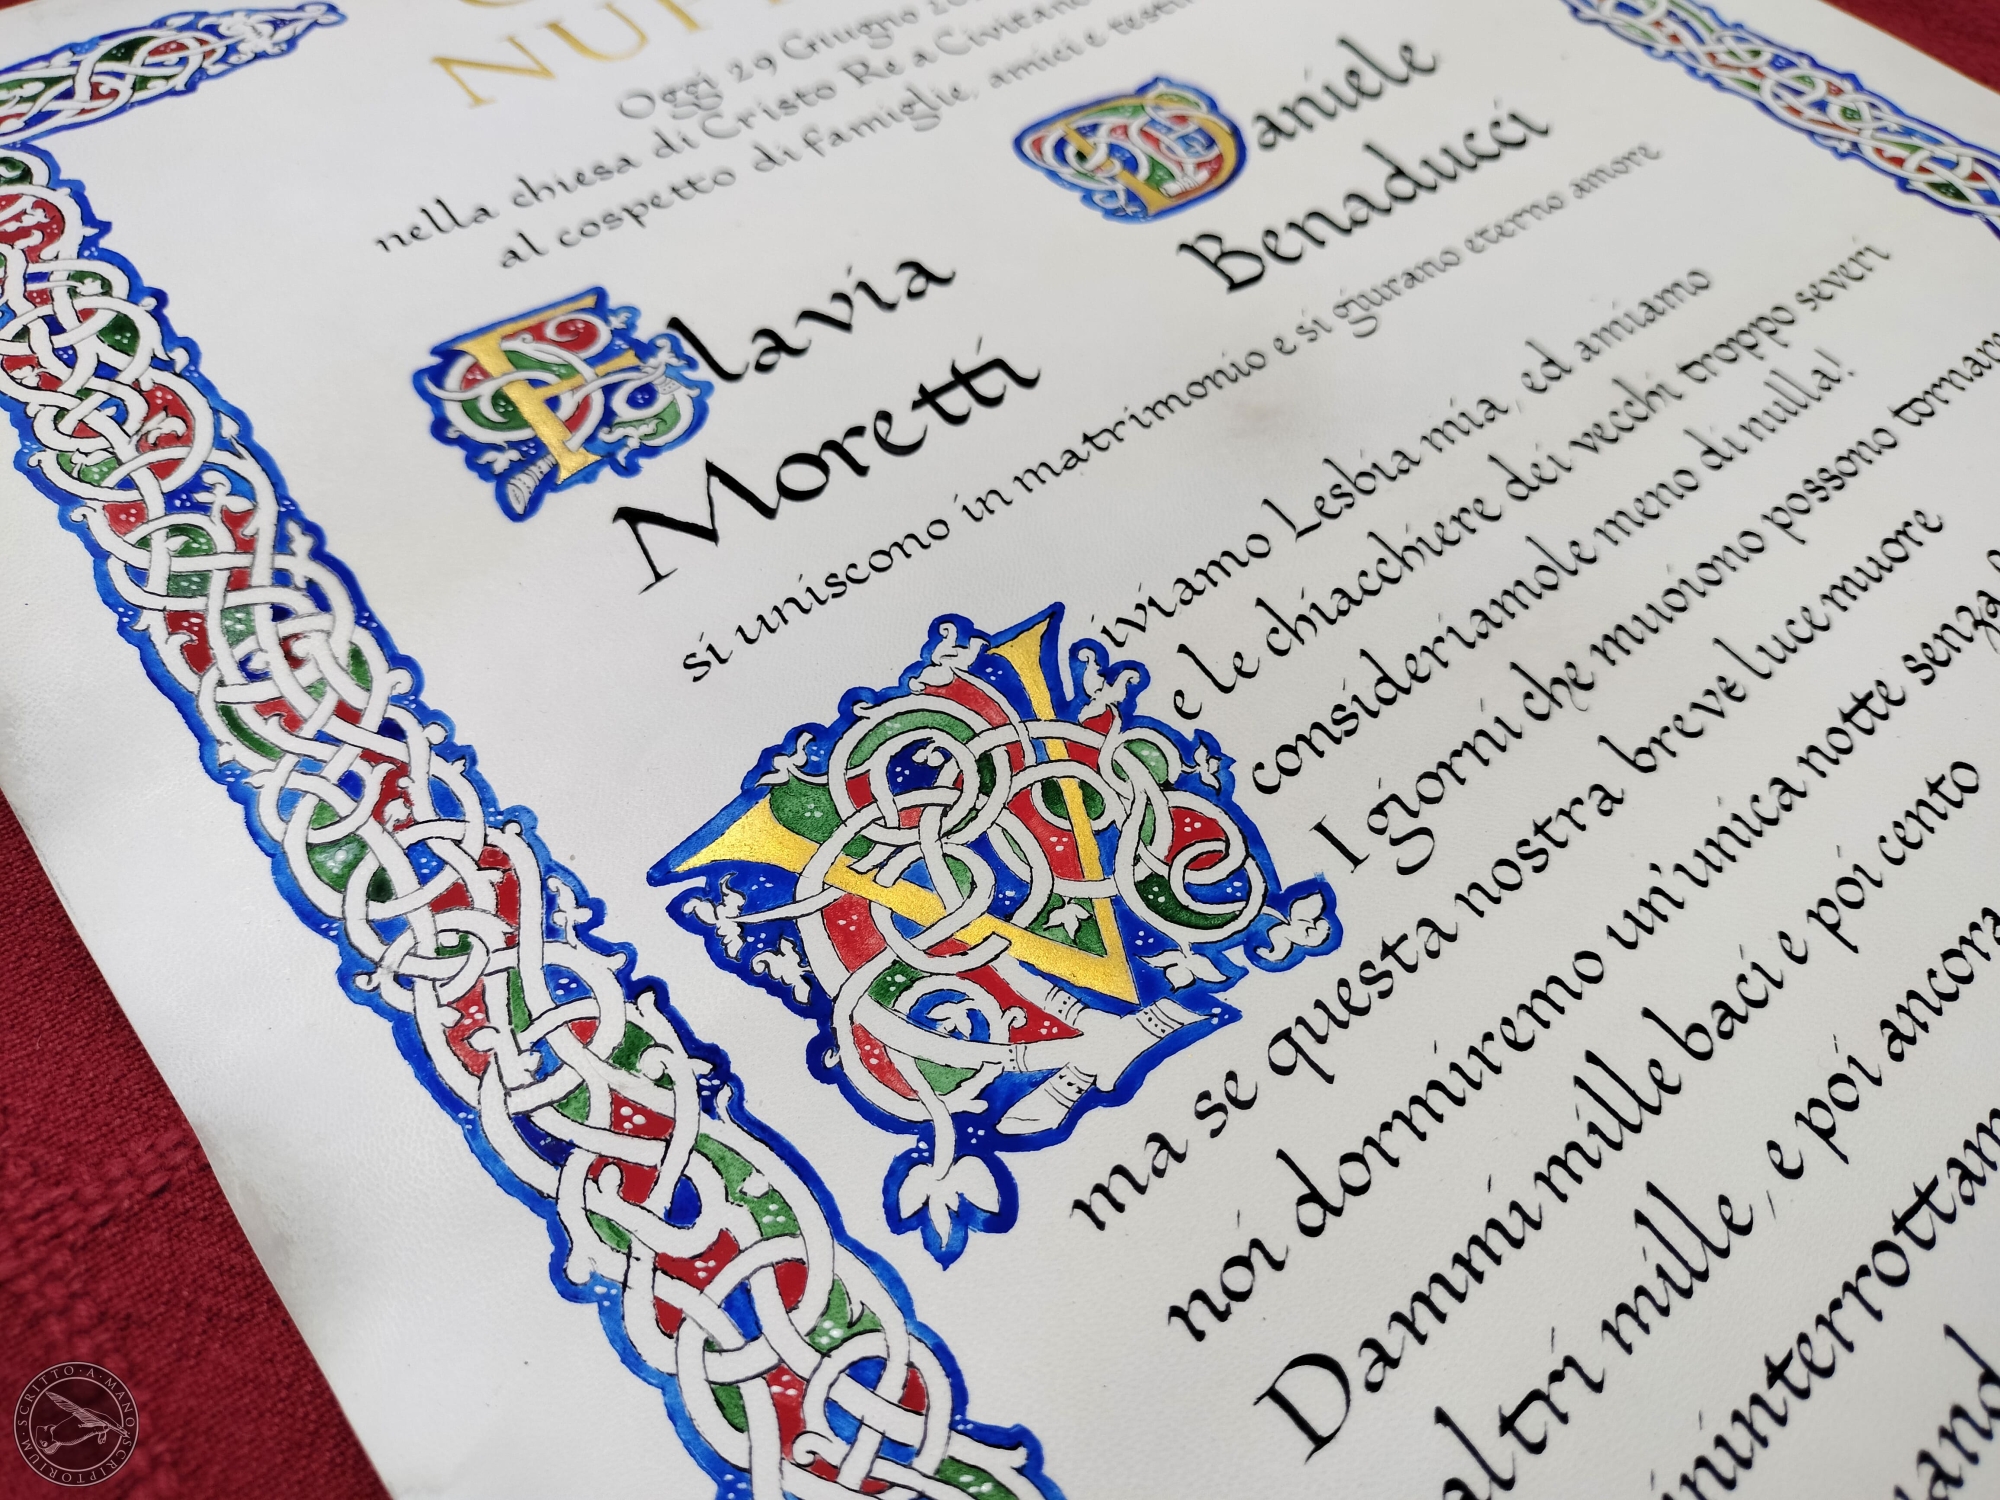 NUP
Oggi 29 Giugno
nella chiesa di Cristo Re a Civitano
al cospetto di famiglie, amici e
Flavia
Moretti
Daniele
Benaducci
si uniscono in matrimonio e si giurano eterno amore
Viviamo Lesbia mia, ed amiamo
e le chiacchiere dei vecchi troppo severi
consideriamole meno di nulla!
I giorni che muoiono possono tornare
ma se questa nostra breve luce muore
noi dormiremo un'unica notte senza
Dammi mille baci e poi cento
altri mille, e poi ancora
ininterrottam
SCRITTO·A·MANO·SCRIPTORIUM·